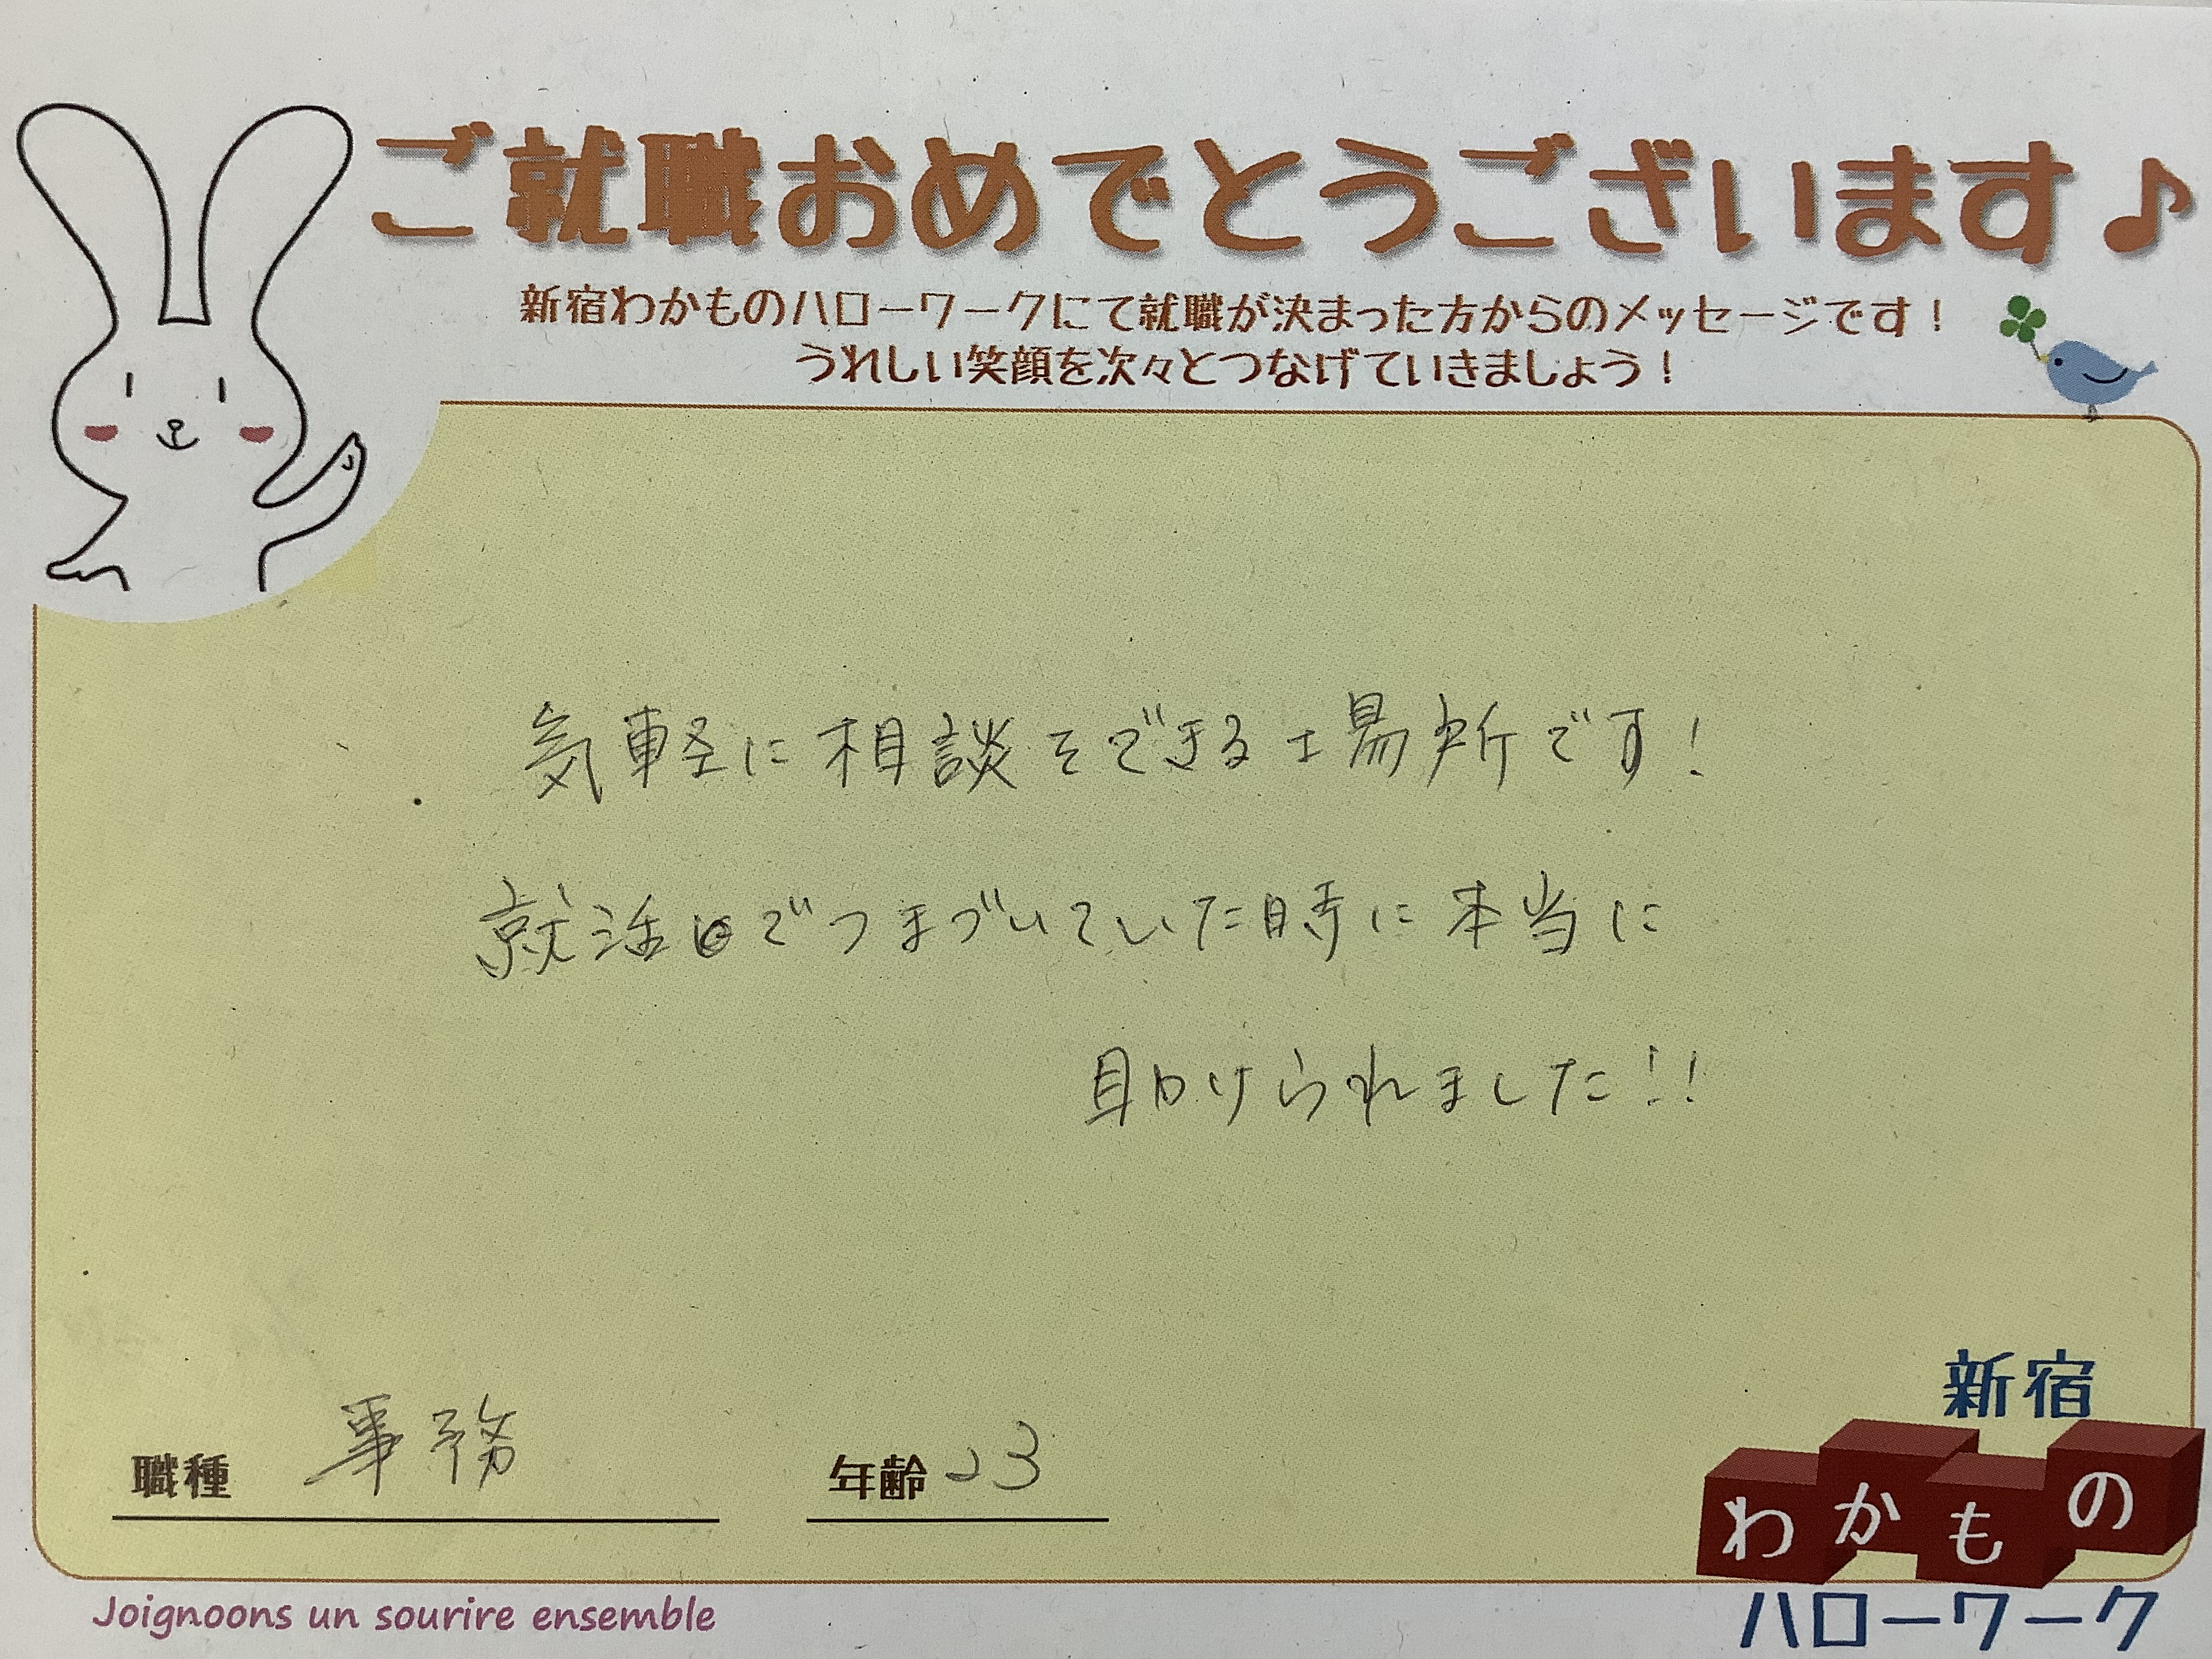 ご就職おめでとうございます♪
新宿わかものハローワークにて就職が決まった方からのメッセージです！
うれしい笑顔を次々とつなげていきましょう！
気軽に相談をできる場所です！
就活でつまづいていた時に本当に
助けられました！！
職種 事務 年齢 23
新宿
わかもの
ハローワーク
Joignoons un sourire ensemble